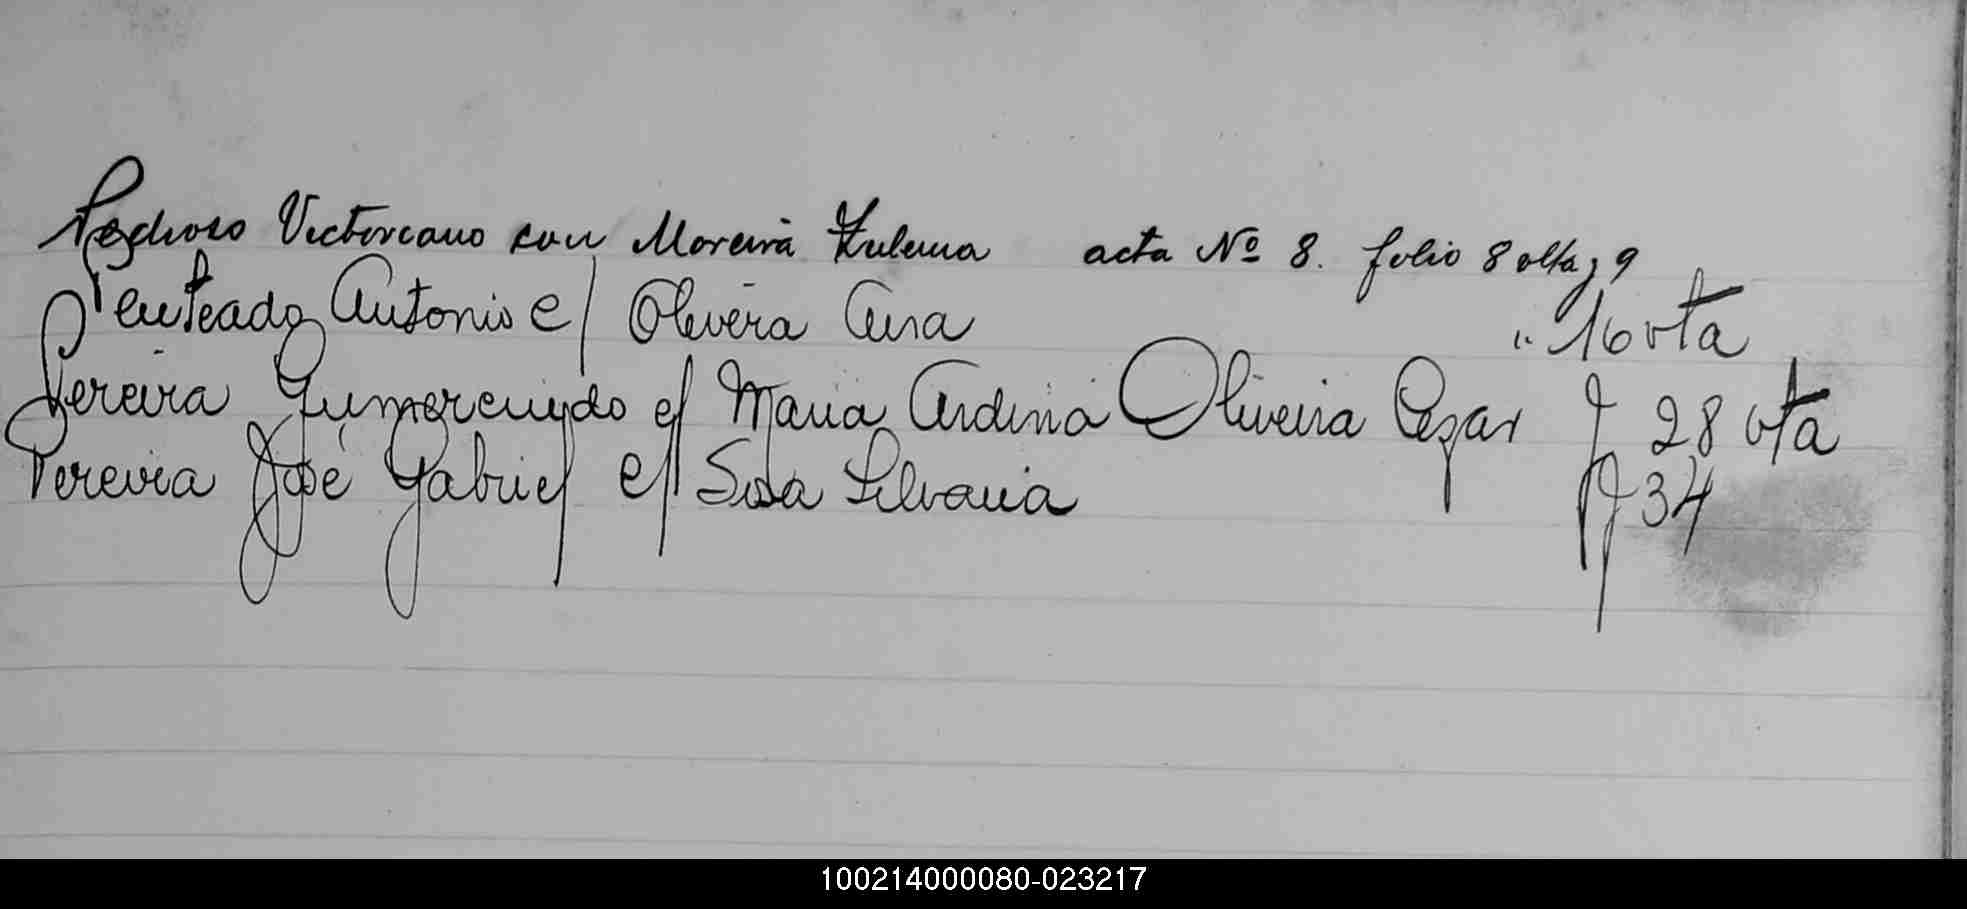 Pedroso Victoreano con Moreira Zulema acta Nº 8. folio 8 vlta y 9
Penteado Antonio c/ Olivera Ana " 16 vta
Pereira Gumercindo c/ Maria Ardina Oliveira Cezar f 28 vta
Pereira José Gabriel c/ Sosa Silvana f 34
100214000080-023217